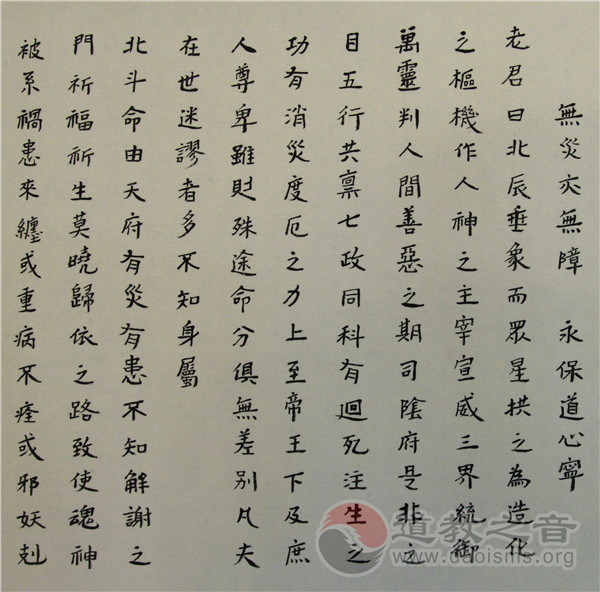 無災亦無障　永保道心寧
老君曰北辰垂象而眾星拱之為造化
之樞機作人神之主宰宣威三界統御
萬靈判人間善惡之期司陰府是非之
目五行共稟七政同科有迴死注生之
功有消災度厄之力上至帝王下及庶
人尊卑雖則殊途命分俱無差別凡夫
在世迷謬者多不知身屬
北斗命由天府有災有患不知解謝之
門祈福祈生莫曉歸依之路致使魂神
被系禍患來纏或重病不痊或邪妖剋
道教之音
www.daoisms.org